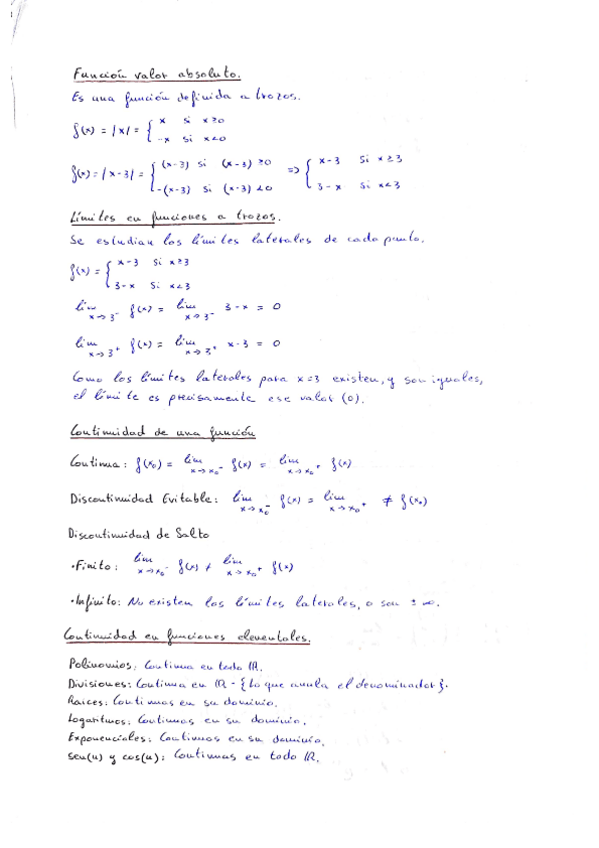 Función valor absoluto.
Es una función definida a trozos.
f(x) = |x| = { x si x≥0
-x si x<0
f(x) = |x-3| = { (x-3) si (x-3) ≥0 => { x-3 si x≥3
-(x-3) si (x-3) <0 3-x si x<3
Límites en funciones a trozos.
Se estudian los límites laterales de cada punto.
f(x) = { x-3 si x≥3
3-x si x<3
lim x→3⁻ f(x) = lim x→3⁻ 3-x = 0
lim x→3⁺ f(x) = lim x→3⁺ x-3 = 0
Como los límites laterales para x=3 existen, y son iguales,
el límite es precisamente ese valor (0).
Continuidad de una función
Continua: f(x₀) = lim x→x₀⁻ f(x) = lim x→x₀⁺ f(x)
Discontinuidad Evitable: lim x→x₀⁻ f(x) = lim x→x₀⁺ ≠ f(x₀)
Discontinuidad de Salto
·Finito: lim x→x₀⁻ f(x) ≠ lim x→x₀⁺ f(x)
·Infinito: No existen los límites laterales, o son ±∞.
Continuidad en funciones elementales.
Polinomios: Continua en todo ℝ.
Divisiones: Continua en ℝ - {Lo que anula el denominador}.
Raíces: Continuas en su dominio.
Logaritmos: Continuas en su dominio.
Exponenciales: Continuas en su dominio.
sen(u) y cos(u): Continuas en todo ℝ.